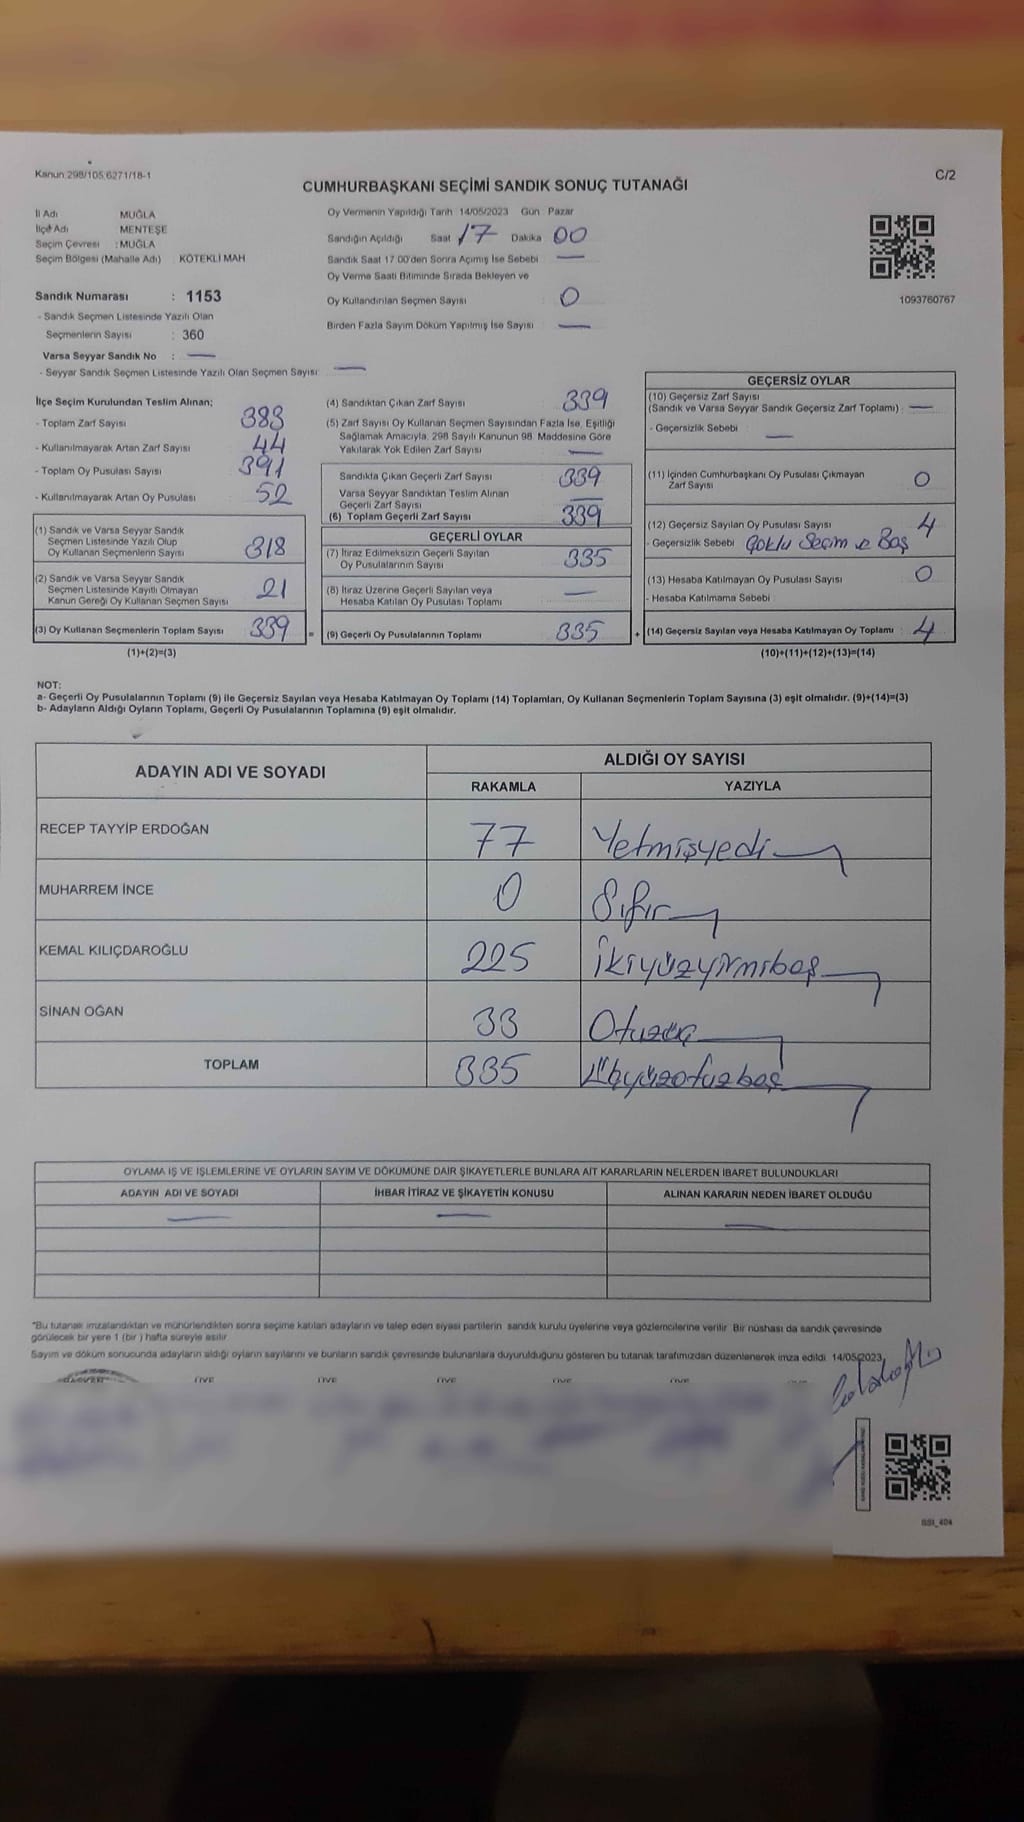 Kanun:298/105,6271/18-1
C/2
CUMHURBAŞKANI SEÇİMİ SANDIK SONUÇ TUTANAĞI
İl Adı MUĞLA
İlçe Adı MENTEŞE
Seçim Çevresi : MUĞLA
Seçim Bölgesi (Mahalle Adı) : KÖTEKLİ MAH
Sandık Numarası : 1153
- Sandık Seçmen Listesinde Yazılı Olan
Seçmenlerin Sayısı : 360
Varsa Seyyar Sandık No : —
- Seyyar Sandık Seçmen Listesinde Yazılı Olan Seçmen Sayısı: —
Oy Vermenin Yapıldığı Tarih 14/05/2023 Gün : Pazar
Sandığın Açıldığı Saat 17 Dakika 00
Sandık Saat 17 00'den Sonra Açımış İse Sebebi —
Oy Verme Saati Bitiminde Sırada Bekleyen ve
Oy Kullandırılan Seçmen Sayısı 0
Birden Fazla Sayım Döküm Yapılmış İse Sayısı —
1093760767
İlçe Seçim Kurulundan Teslim Alınan;
- Toplam Zarf Sayısı 383
- Kullanılmayarak Artan Zarf Sayısı 44
- Toplam Oy Pusulası Sayısı 391
- Kullanılmayarak Artan Oy Pusulası 52
(1) Sandık ve Varsa Seyyar Sandık
Seçmen Listesinde Yazılı Olup
Oy Kullanan Seçmenlerin Sayısı 318
(2) Sandık ve Varsa Seyyar Sandık
Seçmen Listesinde Kayıtlı Olmayan
Kanun Gereği Oy Kullanan Seçmen Sayısı 21
(3) Oy Kullanan Seçmenlerin Toplam Sayısı 339 =
(1)+(2)=(3)
(4) Sandıktan Çıkan Zarf Sayısı 339
(5) Zarf Sayısı Oy Kullanan Seçmen Sayısından Fazla İse, Eşitliği
Sağlamak Amacıyla, 298 Sayılı Kanunun 98. Maddesine Göre
Yakılarak Yok Edilen Zarf Sayısı —
Sandıkta Çıkan Geçerli Zarf Sayısı 339
Varsa Seyyar Sandıktan Teslim Alınan
Geçerli Zarf Sayısı —
(6) Toplam Geçerli Zarf Sayısı 339
GEÇERLİ OYLAR
(7) İtiraz Edilmeksizin Geçerli Sayılan
Oy Pusulalarının Sayısı 335
(8) İtiraz Üzerine Geçerli Sayılan veya
Hesaba Katılan Oy Pusulası Toplamı —
(9) Geçerli Oy Pusulalarının Toplamı 335 +
GEÇERSİZ OYLAR
(10) Geçersiz Zarf Sayısı
(Sandık ve Varsa Seyyar Sandık Geçersiz Zarf Toplamı) : —
- Geçersizlik Sebebi : —
(11) İçinden Cumhurbaşkanı Oy Pusulası Çıkmayan
Zarf Sayısı 0
(12) Geçersiz Sayılan Oy Pusulası Sayısı 4
- Geçersizlik Sebebi Çoklu Seçim ve Boş
(13) Hesaba Katılmayan Oy Pusulası Sayısı 0
- Hesaba Katılmama Sebebi
(14) Geçersiz Sayılan veya Hesaba Katılmayan Oy Toplamı : 4
(10)+(11)+(12)+(13)=(14)
NOT:
a- Geçerli Oy Pusulalarının Toplamı (9) ile Geçersiz Sayılan veya Hesaba Katılmayan Oy Toplamı (14) Toplamları, Oy Kullanan Seçmenlerin Toplam Sayısına (3) eşit olmalıdır. (9)+(14)=(3)
b- Adayların Aldığı Oyların Toplamı, Geçerli Oy Pusulalarının Toplamına (9) eşit olmalıdır.
ADAYIN ADI VE SOYADI ALDIĞI OY SAYISI
RAKAMLA YAZIYLA
RECEP TAYYİP ERDOĞAN 77 Yetmişyedi
MUHARREM İNCE 0 Sıfır
KEMAL KILIÇDAROĞLU 225 İkiyüzyirmibeş
SİNAN OĞAN 33 Otuzüç
TOPLAM 335 Üçyüzotuzbeş
OYLAMA İŞ VE İŞLEMLERİNE VE OYLARIN SAYIM VE DÖKÜMÜNE DAİR ŞİKAYETLERLE BUNLARA AİT KARARLARIN NELERDEN İBARET BULUNDUKLARI
ADAYIN ADI VE SOYADI İHBAR İTİRAZ VE ŞİKAYETİN KONUSU ALINAN KARARIN NEDEN İBARET OLDUĞU
— — —
"Bu tutanak imzalandıktan ve mühürlendikten sonra seçime katılan adayların ve talep eden siyasi partilerin sandık kurulu üyelerine veya gözlemcilerine verilir. Bir nüshası da sandık çevresinde
görülecek bir yere 1 (bir ) hafta süreyle asılır
Sayım ve döküm sonucunda adayların aldığı oyların sayılarını ve bunların sandık çevresinde bulunanlara duyurulduğunu gösteren bu tutanak tarafımızdan düzenlenerek imza edildi. 14/05/2023